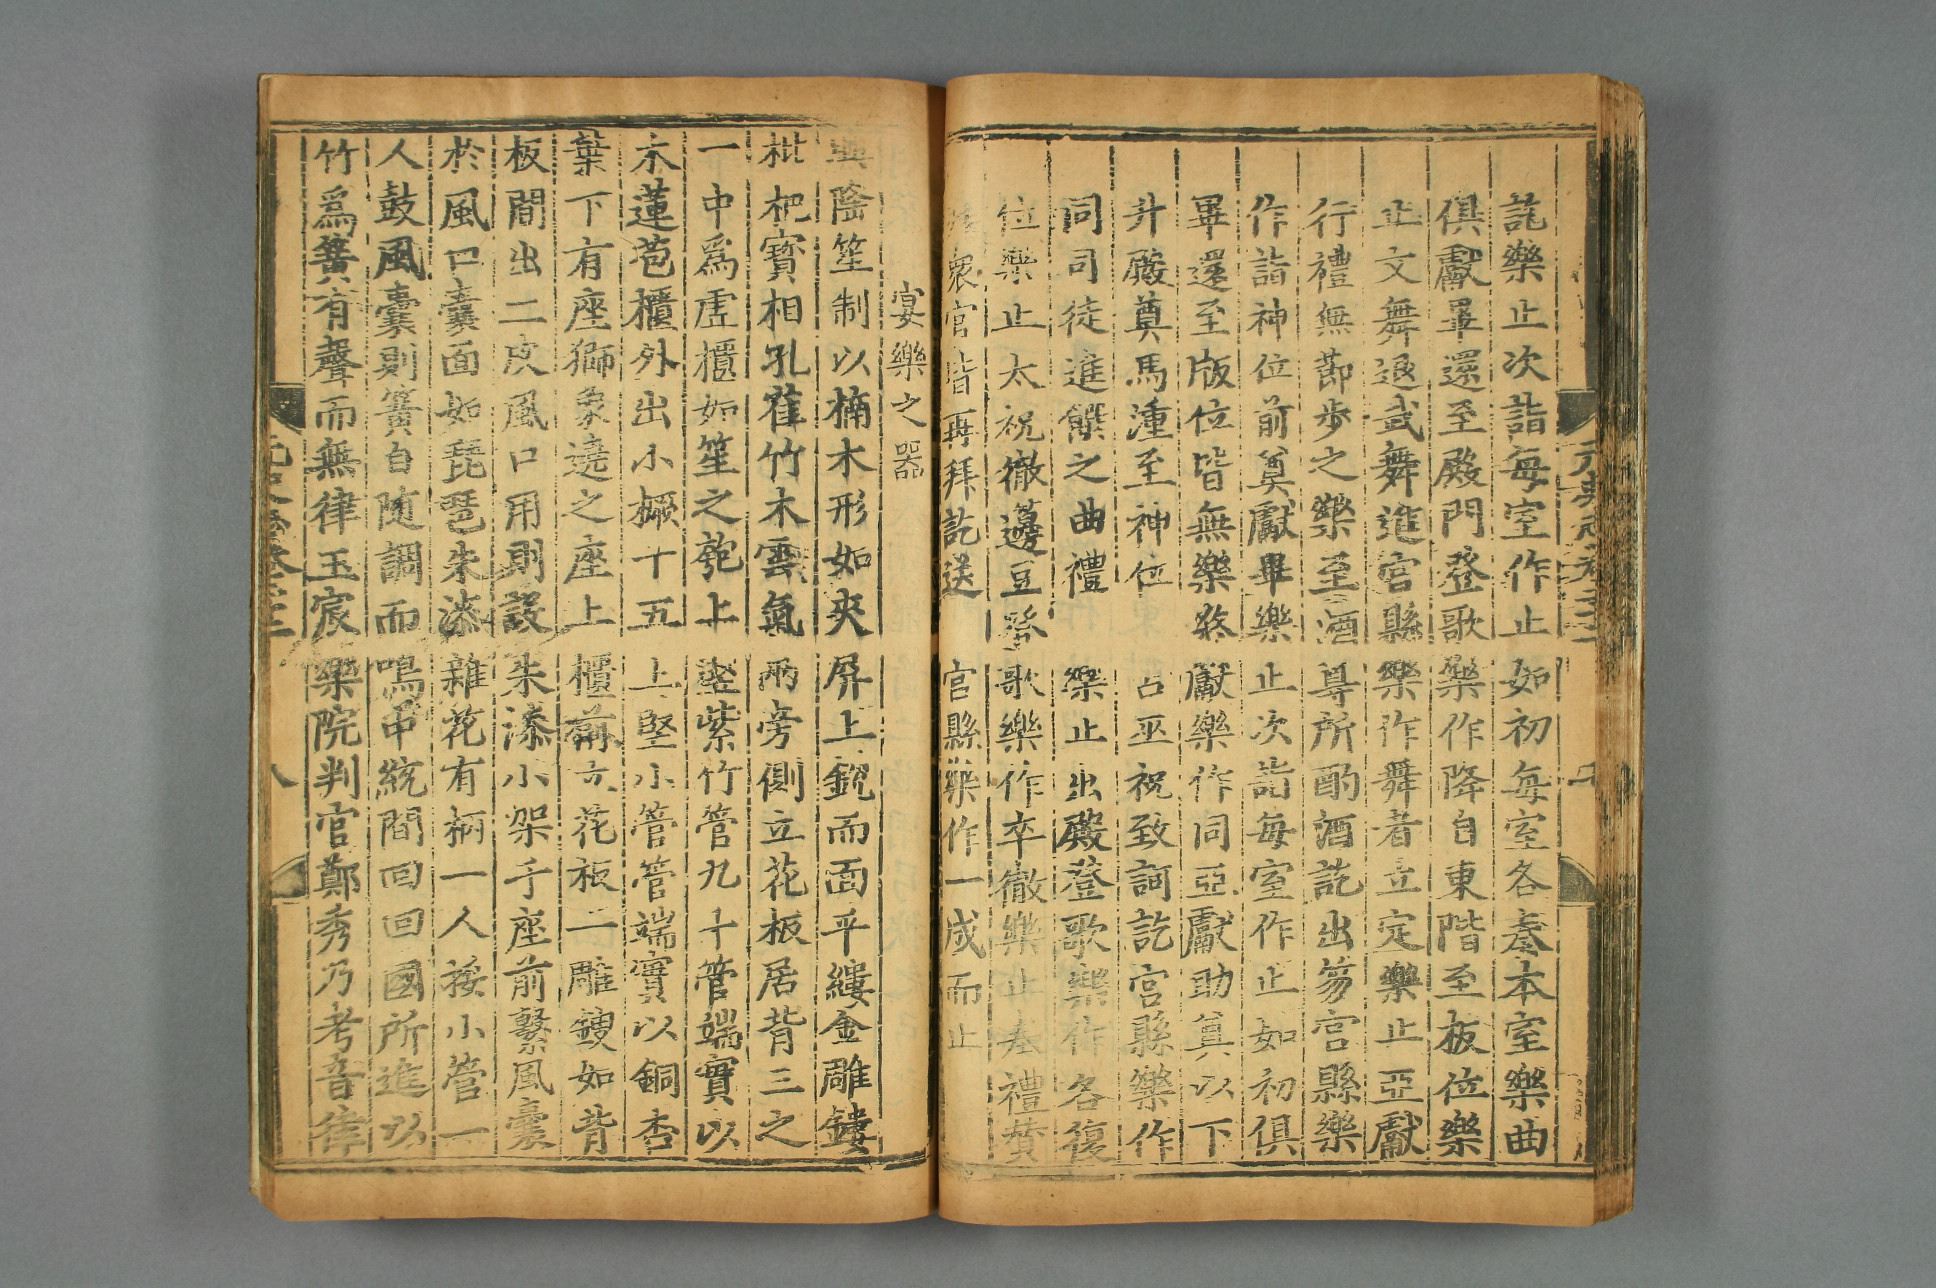 訖樂止次詣每室作止如初每室各奏本室樂曲
俱獻畢還至殿門登歌樂作降自東階至板位樂
止文舞退武舞進宮縣樂作舞者立定樂止亞獻
行禮無節步之樂至酒尊所酌酒訖出笏宮縣樂
作詣神位前奠獻畢樂止次詣每室作止如初俱
畢還至版位皆無樂終獻樂作同亞獻助奠以下
升殿奠馬湩至神位 巫祝致詞訖宮縣樂作
同司徒進饌之曲禮 樂止出殿登歌樂作各復
位樂止太祝徹籩豆登歌樂作卒徹樂止奉禮贊
衆官皆再拜訖送 宮縣樂作一成而止
宴樂之器
興隆笙制以楠木形如夾屏上銳而面平縷金雕鏤
枇杷寶相孔雀竹木雲氣兩旁側立花板居背三之
一中爲虛櫃如笙之匏上竪紫竹管九十管端實以
木蓮苞櫃外出小橛十五上竪小管管端實以銅杏
葉下有座獅象遶之座上櫃前立花板一雕鏤如背
板間出二皮風口用則設朱漆小架于座前繫風囊
於風口囊面如琵琶朱漆雜花有柄一人挼小管一
人鼓風囊則簧自隨調而鳴中統間回回國所進以
竹爲簧有聲而無律玉宸樂院判官鄭秀乃考音律
八